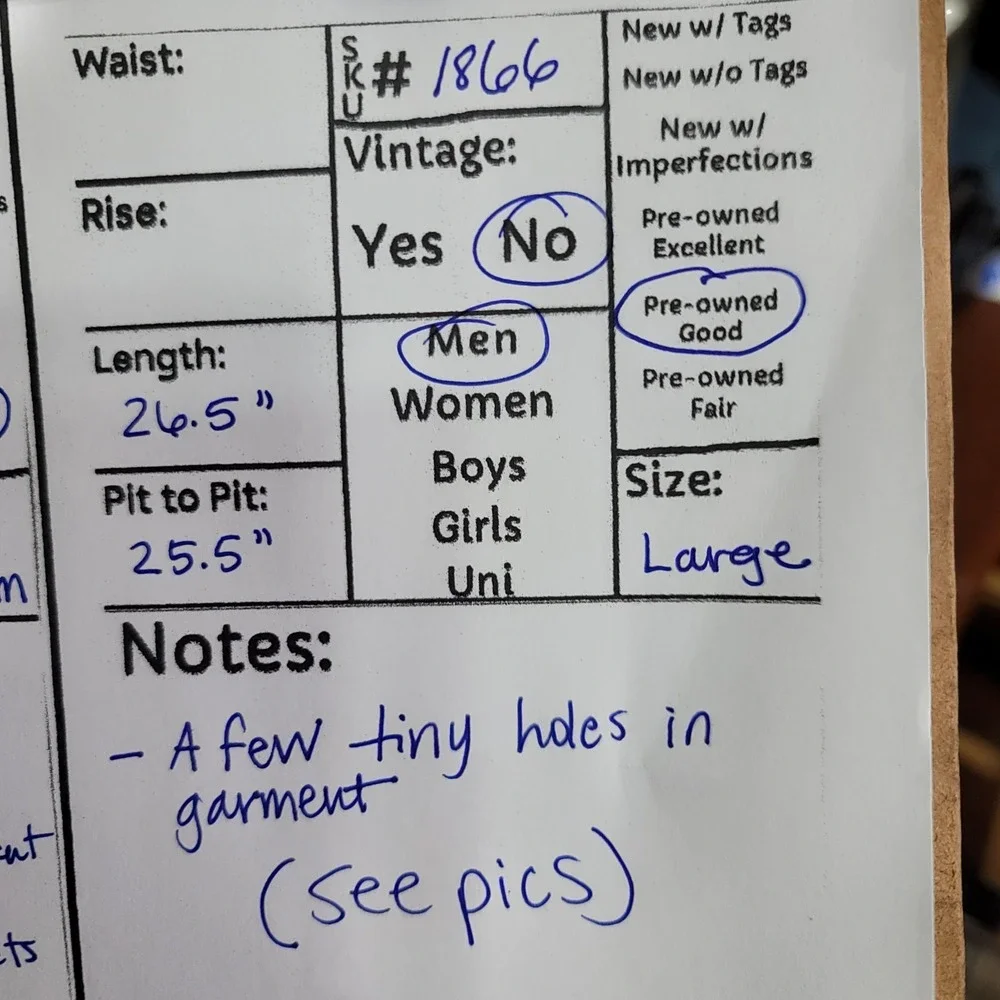 Waist:
SKU # 1866
New w/ Tags
New w/o Tags
New w/
Imperfections
Pre-owned
Excellent
Pre-owned
Good
Pre-owned
Fair
Vintage:
Yes No
Rise:
Length:
26.5"
Men
Women
Boys
Girls
Uni
Pit to Pit:
25.5"
Size:
Large
Notes:
- A few tiny holes in
garment
(see pics)